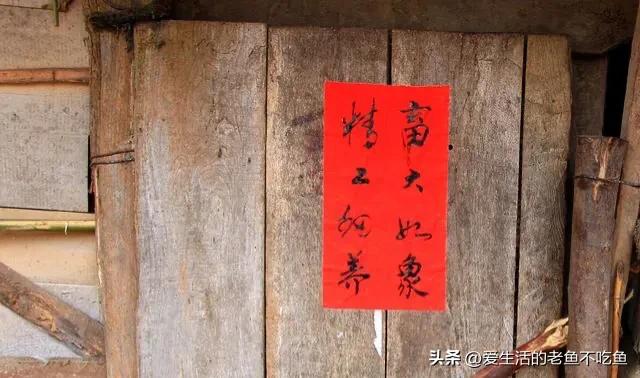 畜大如象
精工细养
头条 @爱生活的老鱼不吃鱼